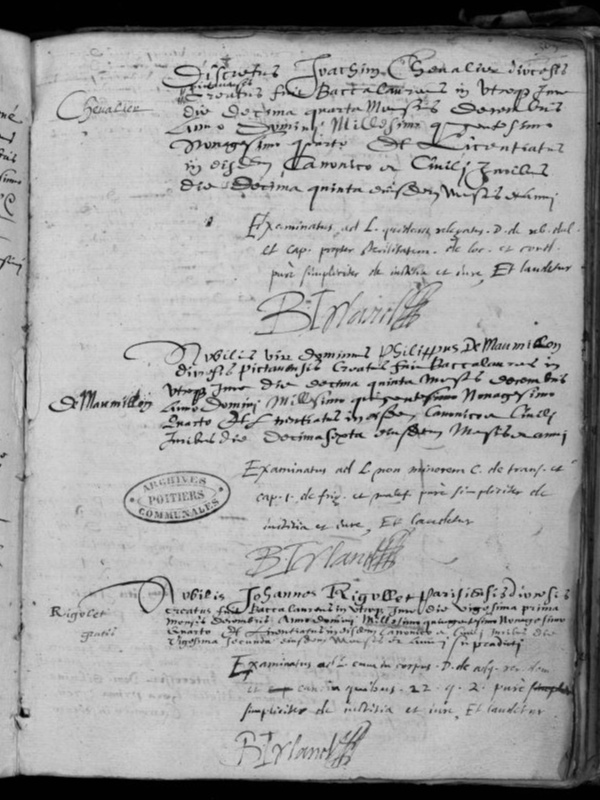 Chevalier
Discretus Joachim Chevalier diocesis
Pictavensis
Creatus fuit Baccalaureus in utroq Jure
die decima quarta Mensis decembris
Anno Domini Millesimo quingentesimo
Nonagesimo quarto Et Licentiatus
in eisdem Canonico et Civili Juribus
die decima quinta eiusdem Mensis et anni
Examinatus ad L. D. de reb. dub.
et cap. propter sterilitatem. de loc. et cond.
pure simpliciter de iustitia et iure, Et laudetur
B Irland
Nobilis vir dominus Philippus De Maumillon
diocesis pictavensis Creatus fuit Baccalaureus in
utroq Jure die decima quinta Mensis decembris
De Maumillon
Anno Domini Millesimo quingentesimo Nonagesimo
quarto Et Licentiatus in eisdem Canonico et Civili
Juribus die decima sexta eiusdem Mensis et anni
Examinatus ad L non minorem C. de trans. et
cap. 1. de et pure simpliciter de
iustitia et iure, Et laudetur
ARCHIVES
POITIERS
COMMUNALES
B. Irland
Nobilis Johannes Rigollet parisiensis diocesis
Rigolet
creatus fuit Baccalaureus in utroq Jure die vigesima prima
mensis decembris Anno domini Millesimo quingentesimo Nonagesimo
quarto Et Licentiatus in eisdem Canonico et Civili Juribus die
vigesima secunda eiusdem Mensis et Anni supradicti
Examinatus ad L cum in corpus. D. de
et can. in quibus. 22. q. 2. pure
simpliciter de iustitia et iure, Et laudetur
B Irland